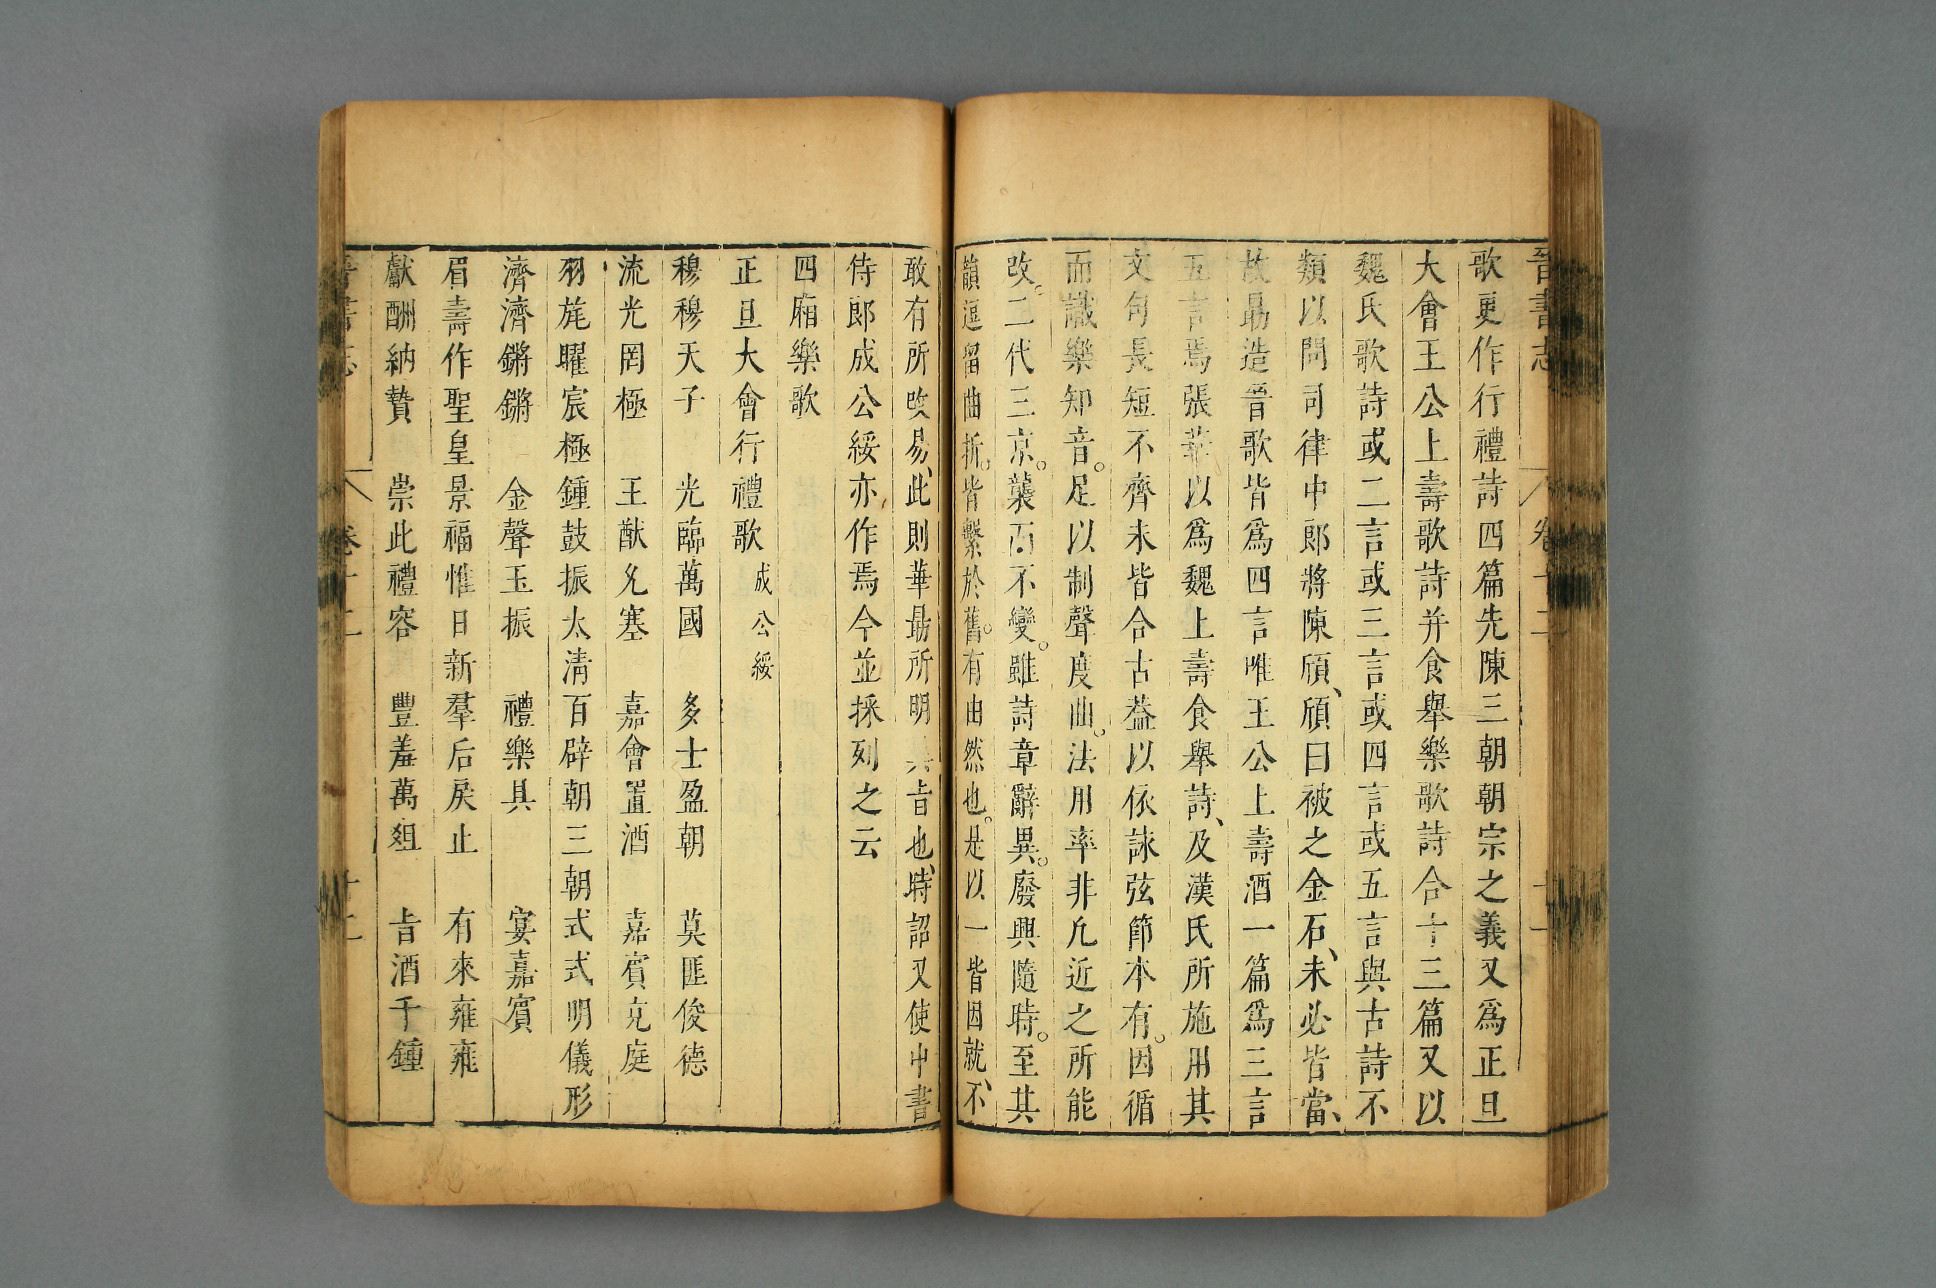 晉書志 卷十二 十一
歌更作行禮詩四篇先陳三朝朝宗之義又爲正旦
大會王公上壽歌詩并食舉樂歌詩合十三篇又以
魏氏歌詩或二言或三言或四言或五言與古詩不
類以問司律中郎將陳頎、頎曰被之金石、未必皆當、
故勗造晉歌皆爲四言唯王公上壽酒一篇爲三言
五言焉張華以爲魏上壽食舉詩、及漢氏所施用其
文句長短不齊未皆合古葢以依詠弦節本有。因循
而識樂知音。足以制聲度曲。法用率非凡近之所能
改。二代三京。襲而不變。雖詩章辭異。廢興隨時。至其
韻逗留曲折。皆繫於舊。有由然也。是以一皆因就、不
敢有所改易、此則華勗所明異旨也、時詔又使中書
侍郎成公綏亦作焉今並採列之云
四廂樂歌
正旦大會行禮歌 成公綏
穆穆天子 光臨萬國 多士盈朝 莫匪俊德
流光罔極 王猷允塞 嘉會置酒 嘉賓充庭
羽旄曜宸極鍾鼓振太清百辟朝三朝式式明儀形
濟濟鏘鏘 金聲玉振 禮樂具 宴嘉賓
眉壽作聖皇景福惟日新羣后戾止 有來雍雍
獻酬納贄 崇此禮容 豐羞萬俎 旨酒千鍾
晉書志 卷十二 十二